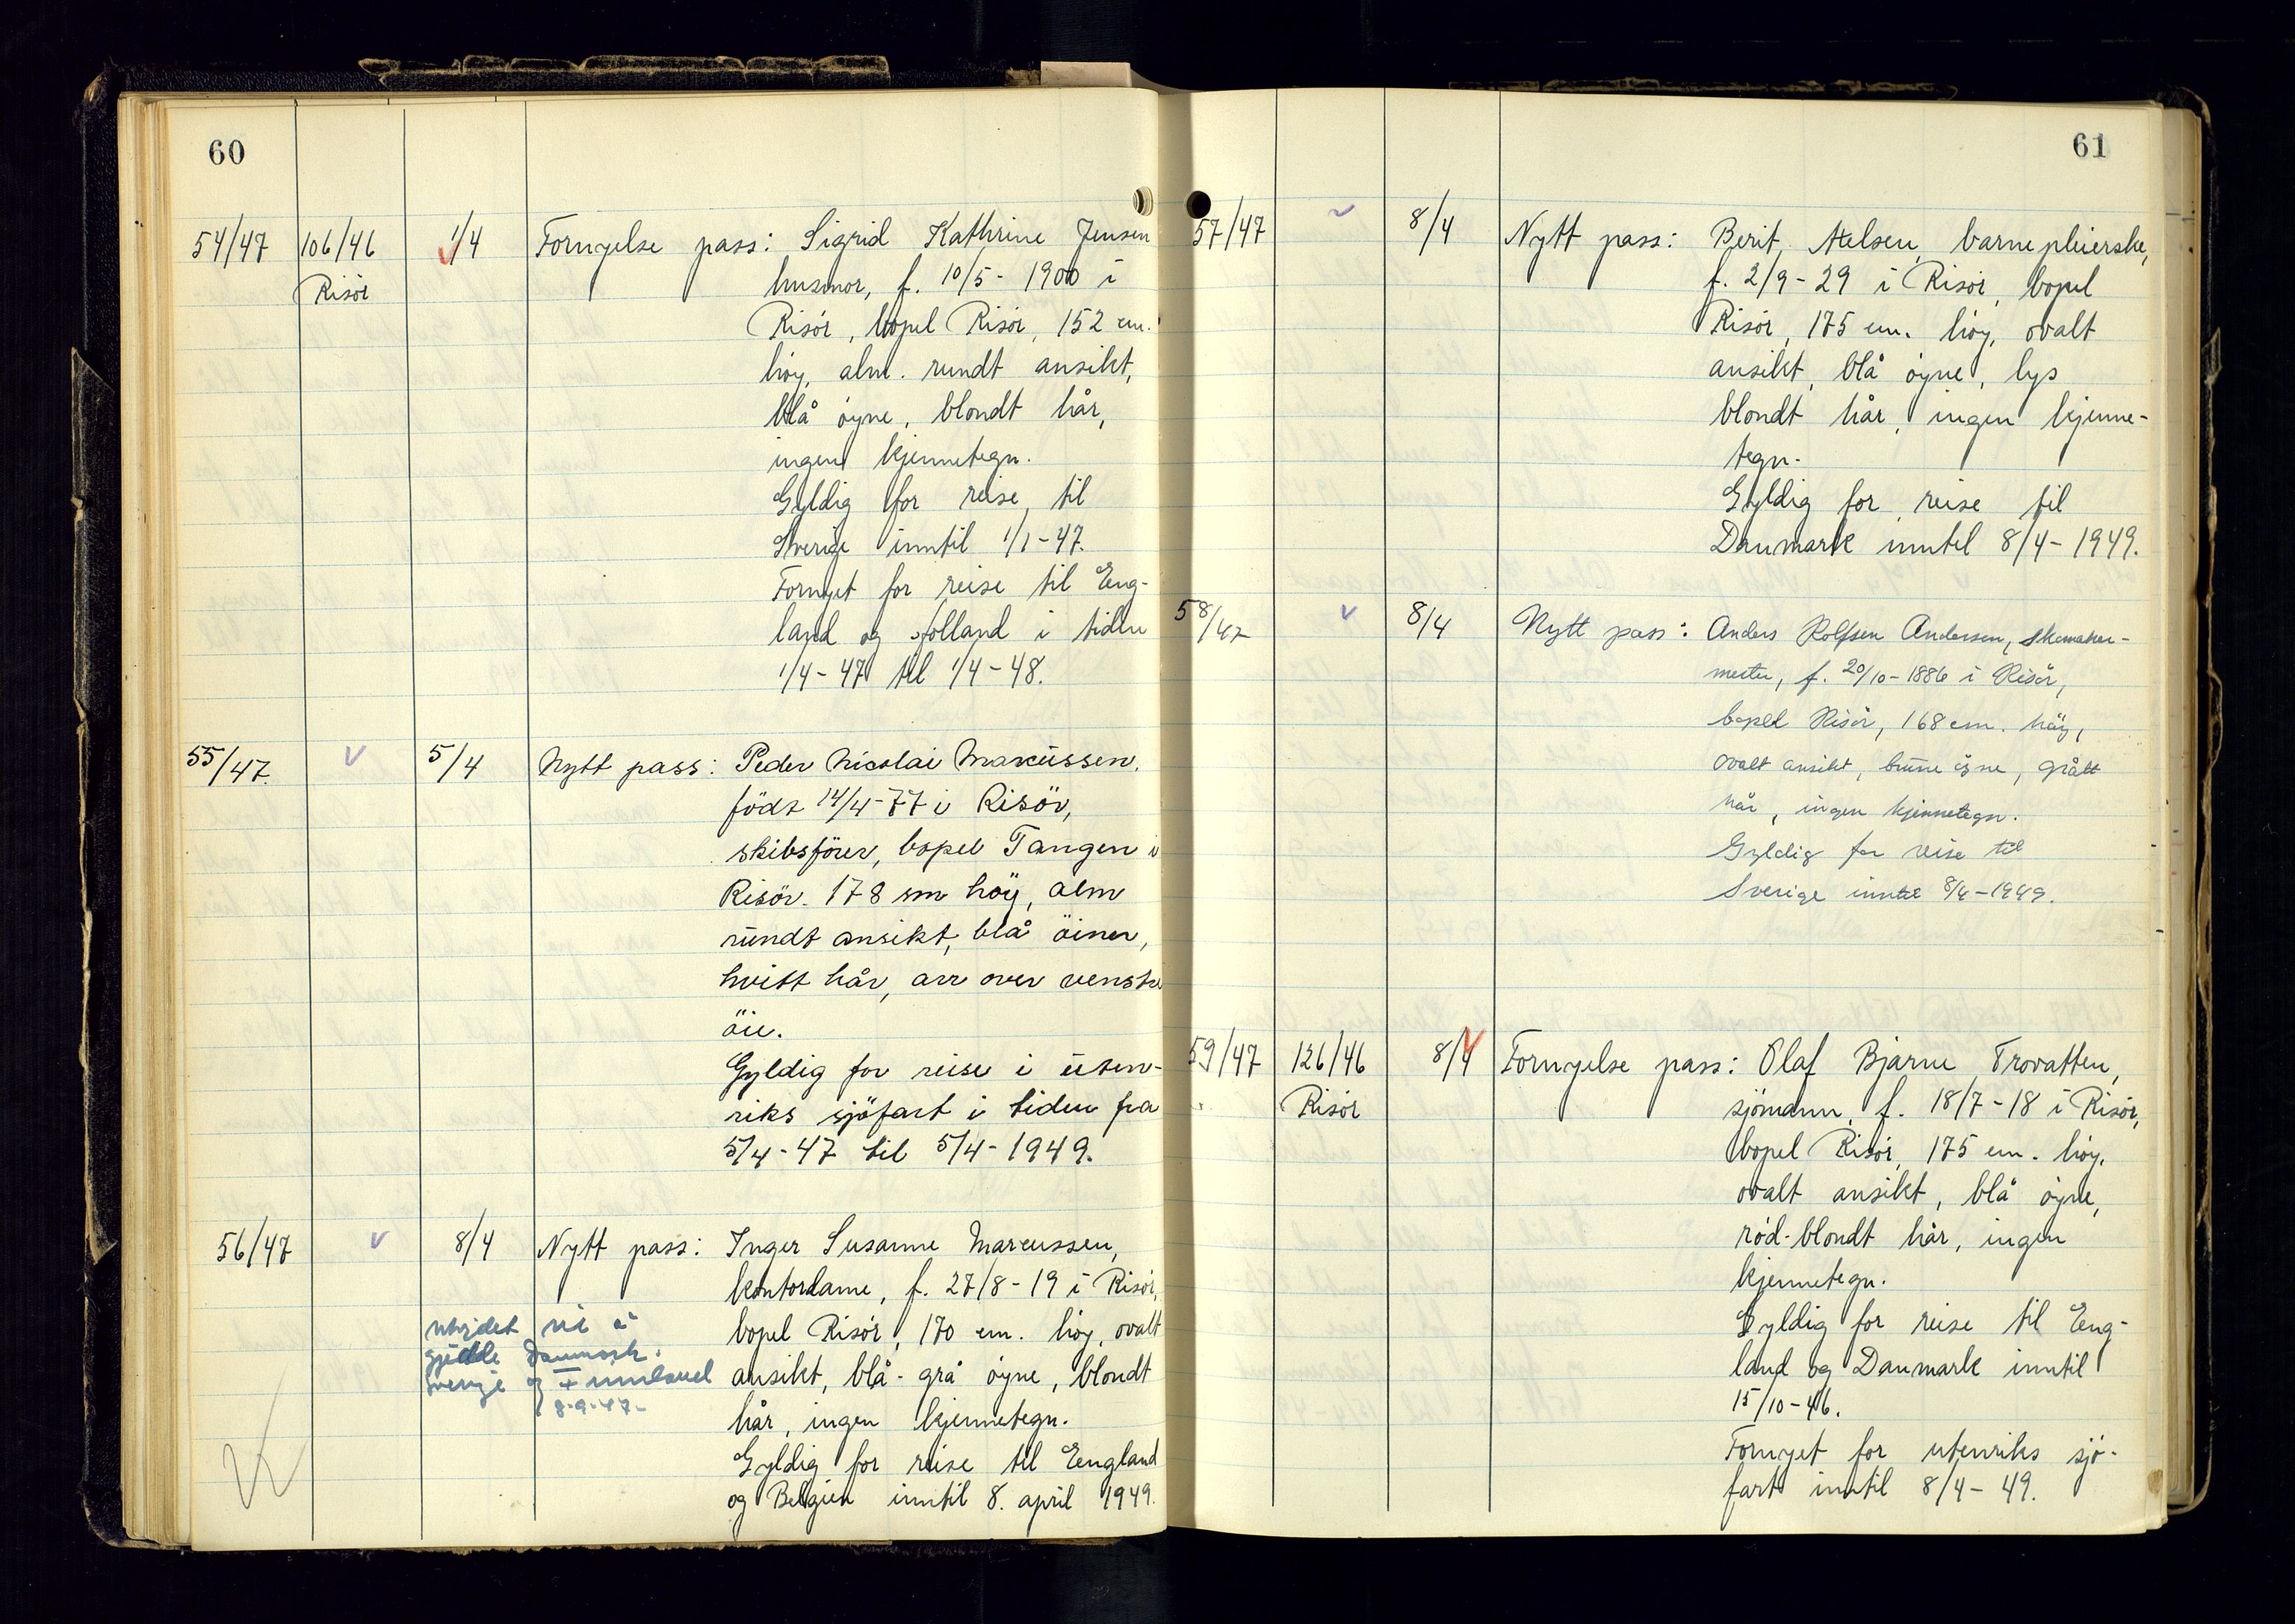 60
54/47 106/46 1/4 Fornyelse pass: Sigrid Kathrine Jensen
Risör
husmor, f. 10/5 - 1900 i
Risör, bopel Risör, 152 cm.
höy, alm. rundt ansikt,
blå öyne, blondt hår,
ingen kjennetegn.
Gyldig for reise til
Sverige inntil 1/1-47.
Fornyet for reise til Eng-
land og Holland i tiden
1/4-47 til 1/4-48.
55/47. v 5/4 Nytt pass: Peder Nicolai Marcussen,
födt 14/4-77 i Risör,
skibsförer, bopel Tangen i
Risör. 178 sm höy, alm
rundt ansikt, blå öiner,
hvitt hår, arr over venstre
öie.
Gyldig for reise i uten-
riks sjöfart i tiden fra
5/4-47 til 5/4-1949.
56/47 v 8/4 Nytt pass: Inger Susanne Marcussen,
kontordame, f. 27/8-19 i Risör,
bopel Risör, 170 cm. höy, ovalt
ansikt, blå-grå öyne, blondt
hår, ingen kjennetegn.
Gyldig for reise til Eengland
og Belgien inntil 8. april 1949.
utvidet til å
gjelde Danmark.
Sverige og Finnland
8-9-47-
61
57/47 v 8/4 Nytt pass: Berit Atelsen, barnepleierske,
f. 2/9-29 i Risör, bopel
Risör, 175 cm. höy, ovalt
ansikt, blå öyne, lys
blondt hår, ingen kjenne-
tegn.
Gyldig for reise til
Danmark inntil 8/4-1949.
58/47 v 8/4 Nytt pass: Anders Rolfsen Andersen, skomaker-
mester, f. 20/10-1886 i Risör,
bopel Risör, 168 cm. höy,
ovalt ansikt, brune öyne, grått
hår, ingen kjennetegn.
Gyldig for reise til
Sverige inntil 8/4-1949.
59/47 126/46 8/4 Fornyelse pass: Olaf Bjarne Trovatten,
Risör
sjömann, f. 18/7-18 i Risör,
bopel Risör, 175 cm. höy,
ovalt ansikt, blå öyne,
röd-blondt hår, ingen
kjennetegn.
Gyldig for reise til Eng-
land og Danmark inntil
15/10-46.
Fornyet for utenriks sjö-
fart inntil 8/4-49.